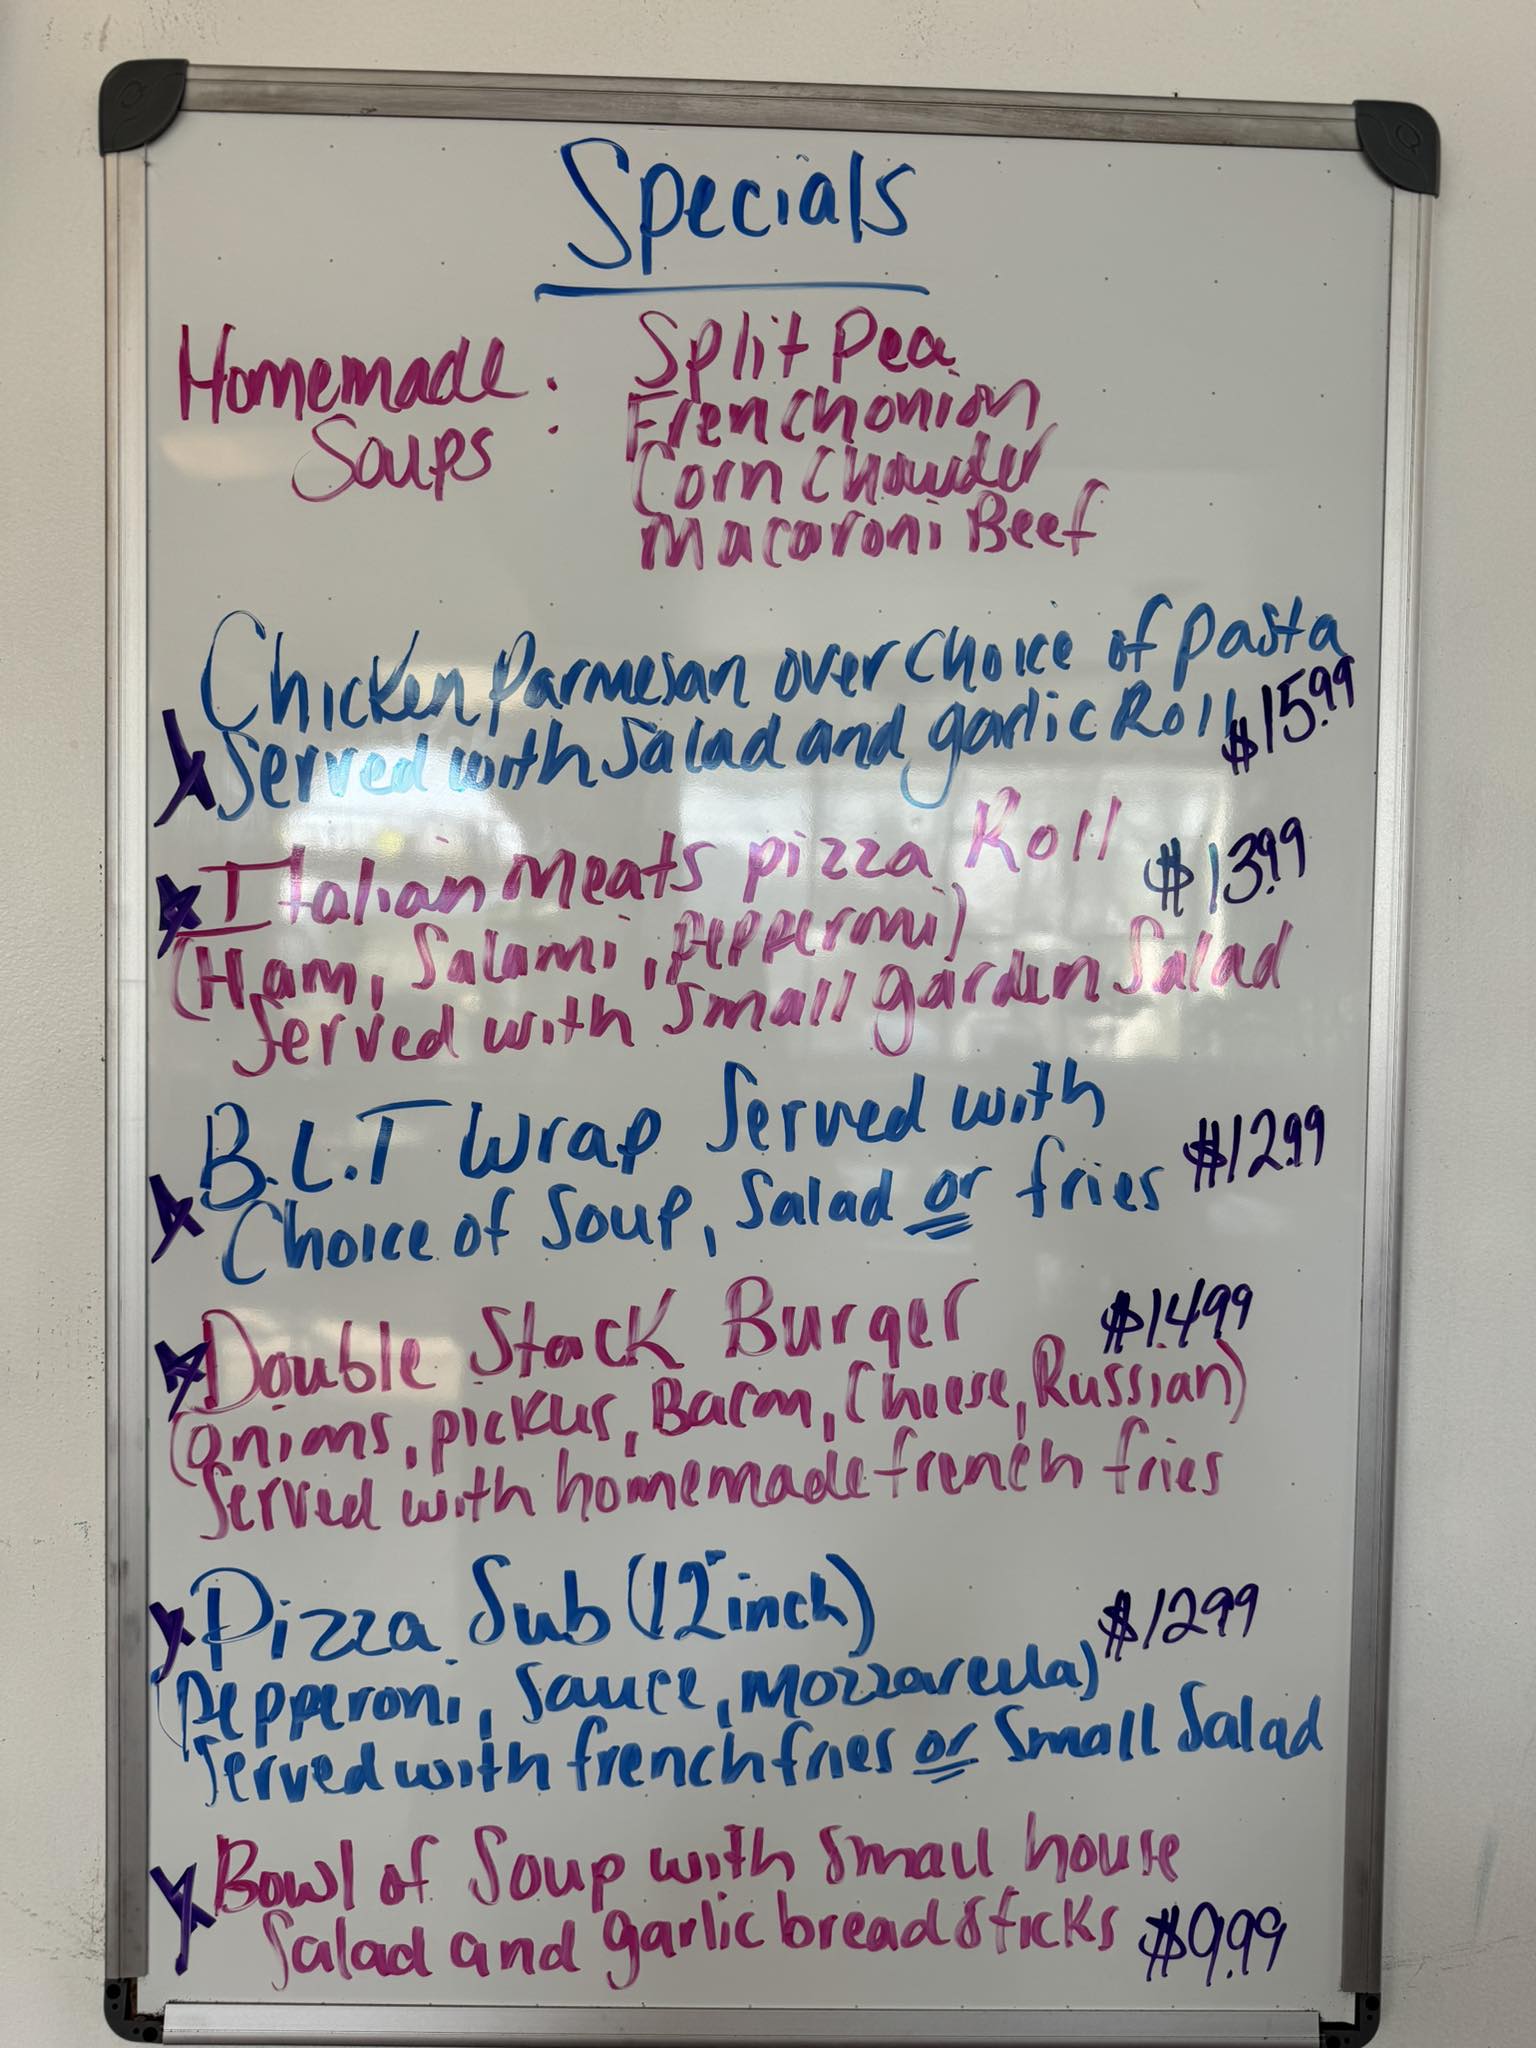 Specials
Homemade Soups:
Split Pea
French onion
Corn Chowder
Macaroni Beef
Chicken Parmesan over choice of pasta
Served with Salad and garlic Roll $15.99
Italian meats pizza Roll $13.99
(Ham, Salami, pepperoni)
Served with Small garden Salad
B.L.T Wrap Served with
Choice of Soup, Salad or fries $12.99
Double Stack Burger $14.99
(onions, pickles, Bacon, Cheese, Russian)
Served with homemade french fries
Pizza Sub (12" inch) $12.99
(Pepperoni, Sauce, Mozzarella)
Served with french fries or Small Salad
Bowl of Soup with Small house
Salad and garlic bread sticks $9.99